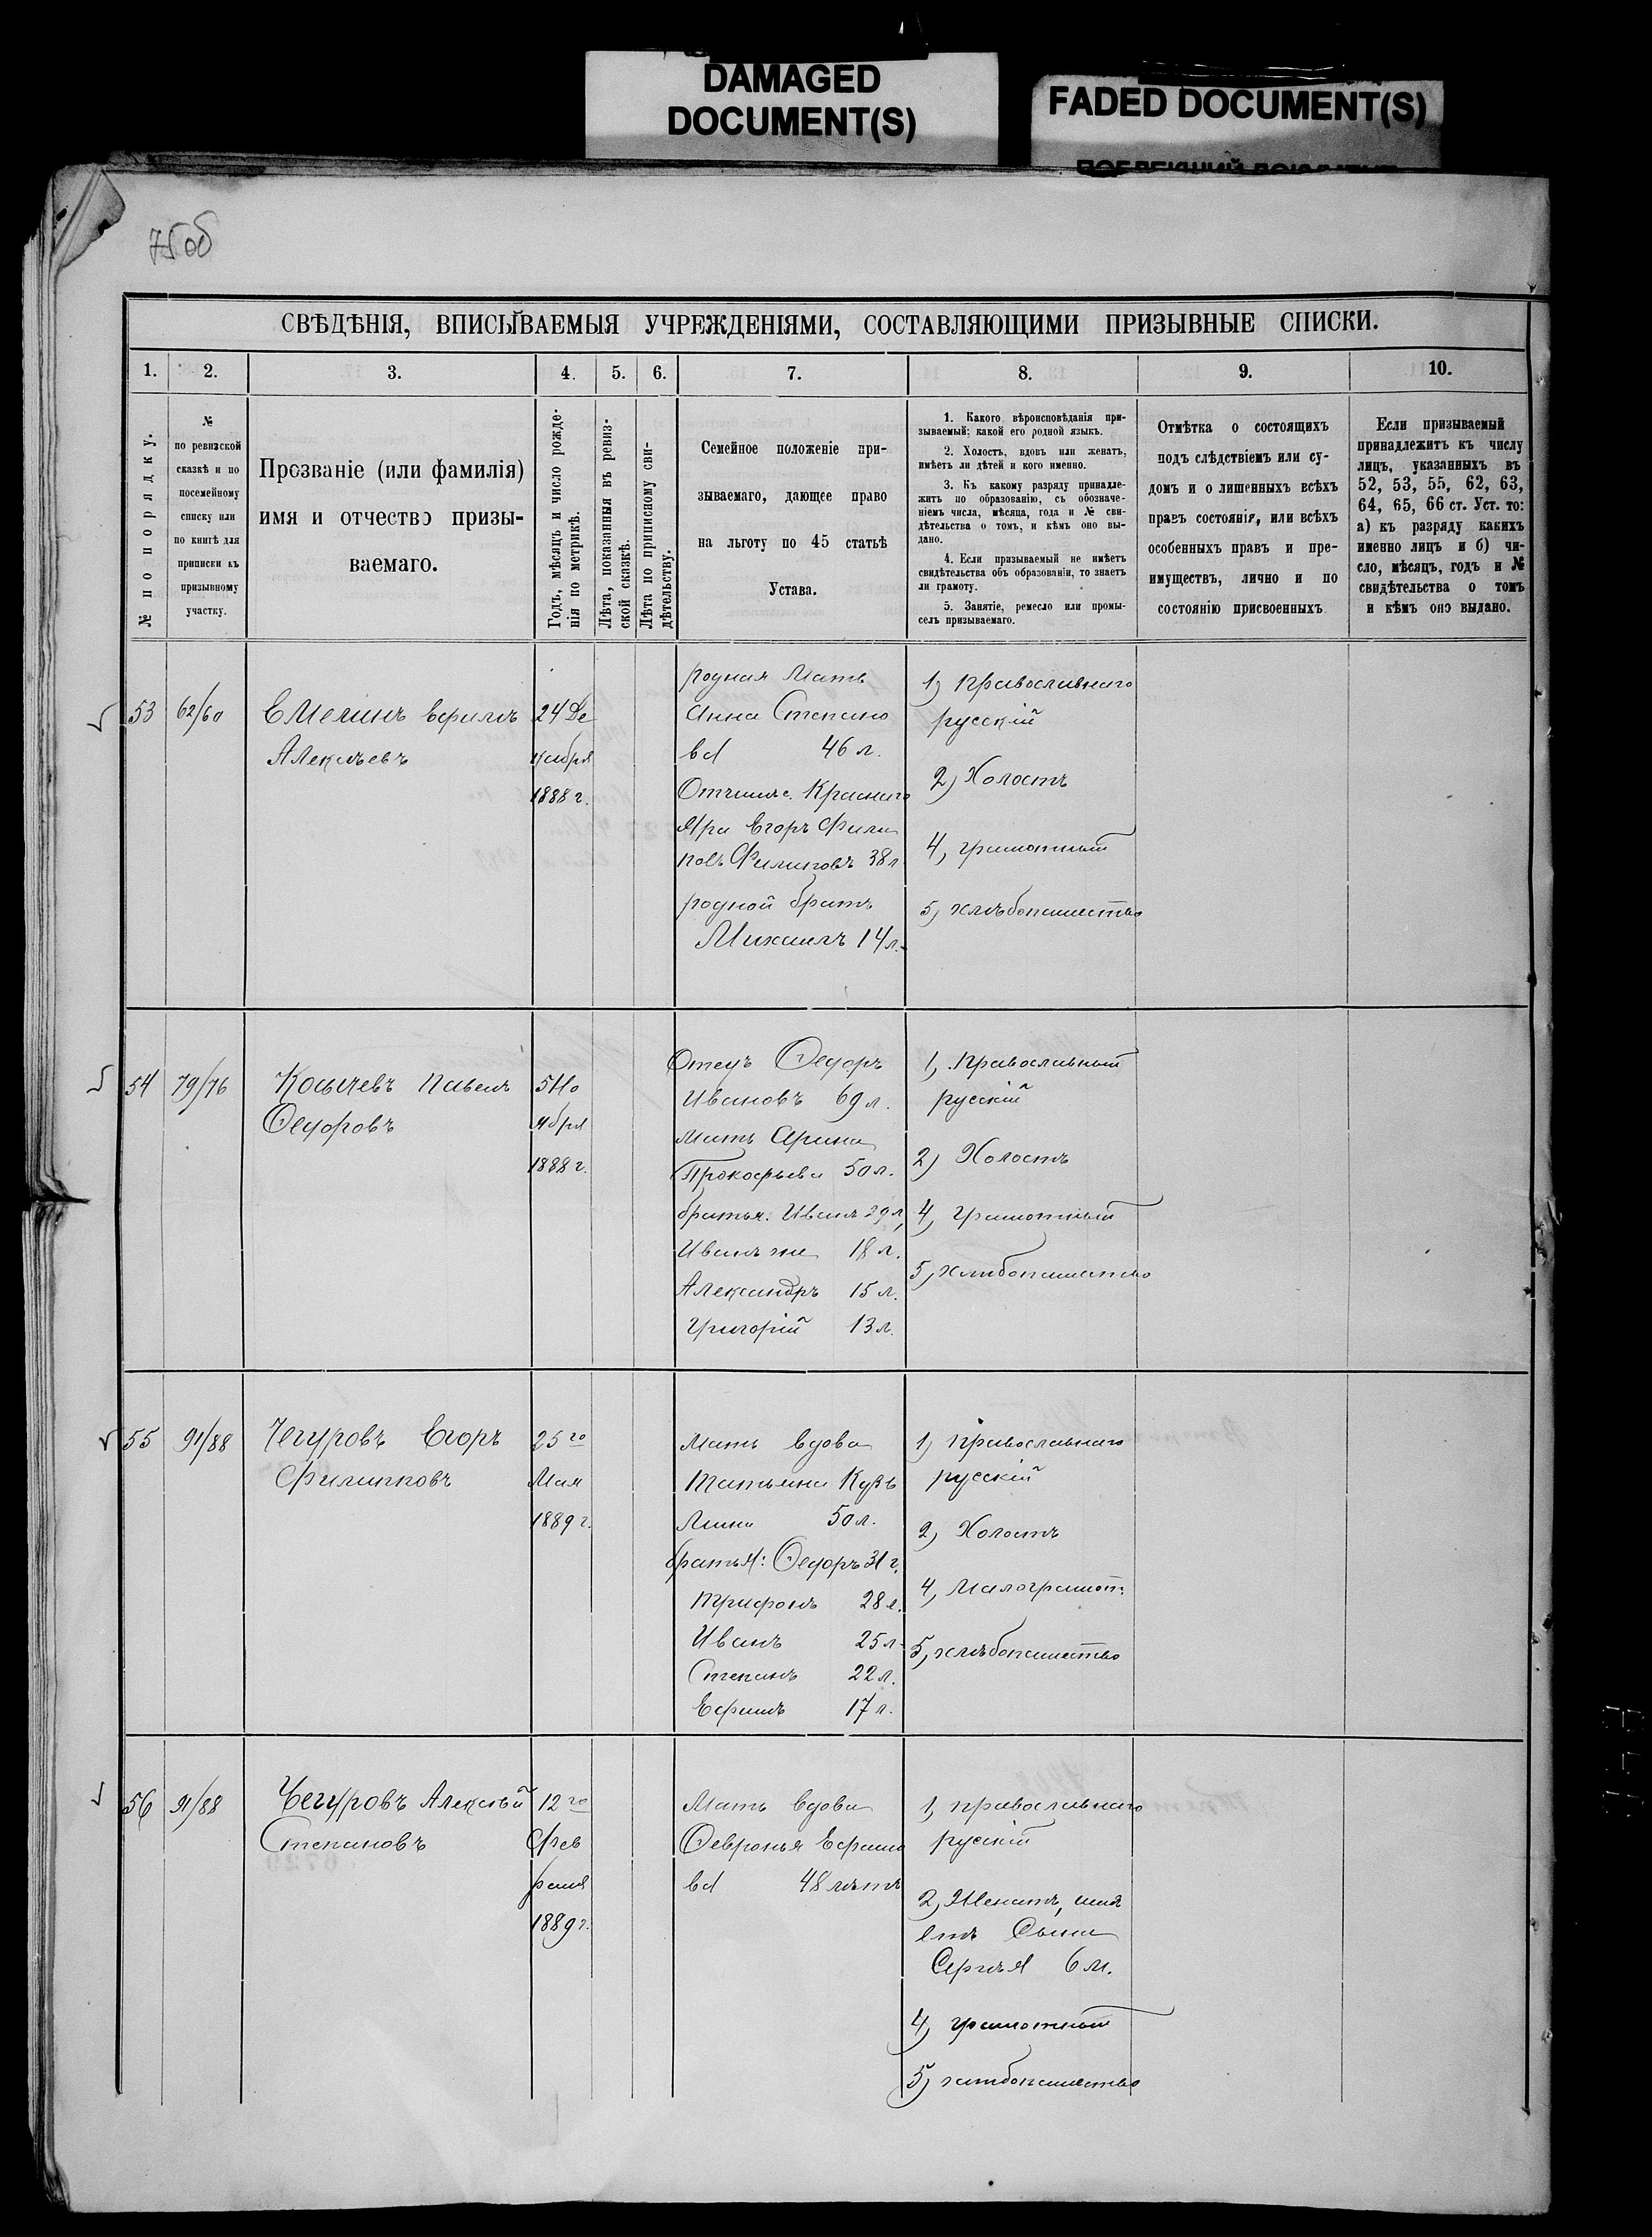 DAMAGED
DOCUMENT(S)
FADED DOCUMENT(S)
75об
СВѢДѢНІЯ, ВПИСЫВАЕМЫЯ УЧРЕЖДЕНІЯМИ, СОСТАВЛЯЮЩИМИ ПРИЗЫВНЫЕ СПИСКИ.
1. 2. 3. 4. 5. 6. 7. 8. 9. 10.
№ по порядку.
№
по ревизской
сказкѣ и по
посемейному
списку или
по книгѣ для
приписки къ
призывному
участку.
Прозваніе (или фамилія)
имя и отчество призы-
ваемаго.
Годъ, мѣсяцъ и число рожде-
нія по метрикѣ.
Лѣта, показанныя въ ревиз-
ской сказкѣ.
Лѣта по приписному сви-
дѣтельству.
Семейное положеніе при-
зываемаго, дающее право
на льготу по 45 статьѣ
Устава.
1. Какого вѣроисповѣданія при-
зываемый; какой его родной языкъ.
2. Холостъ, вдовъ или женатъ,
имѣетъ ли дѣтей и кого именно.
3. Къ какому разряду принадле-
житъ по образованію, съ обозначе-
ніемъ числа, мѣсяца, года и № сви-
дѣтельства о томъ, и кѣмъ оно вы-
дано.
4. Если призываемый не имѣетъ
свидѣтельства объ образованіи, то знаетъ
ли грамоту.
5. Занятіе, ремесло или промы-
селъ призываемаго.
Отмѣтка о состоящихъ
подъ слѣдствіемъ или су-
домъ и о лишенныхъ всѣхъ
правъ состоянія, или всѣхъ
особенныхъ правъ и пре-
имуществъ, лично и по
состоянію присвоенныхъ
Если призываемый
принадлежитъ къ числу
лицъ, указанныхъ въ
52, 53, 55, 62, 63,
64, 65, 66 ст. Уст. то:
а) къ разряду какихъ
именно лицъ и б) чи-
сло, мѣсяцъ, годъ и №
свидѣтельства о томъ
и кѣмъ оно выдано.
53
62/60
Емелинъ Ефимъ
Алексѣевъ
24 Де
кабря
1888 г.
родная Мать
Анна Степано
ва 46 л.
Отчим с. Краснаго
Яра Егоръ Фили
повъ Филиповъ 38 л
родной братъ
Михаилъ 14 л.
1) Православнаго
русскій
2) Холостъ
4, грамотный
5, хлѣбопашество
54
79/76
Косычевъ Павелъ
Ѳедоровъ
5 Но
ября
1888 г.
Отецъ Ѳедоръ
Ивановъ 69 л.
мать Арина
Прокофьева 50 л.
братья: Иванъ 29 л,
Иванъ же 18 л.
Александръ 15 л.
Григорій 13 л.
1, Православный
русскій
2) Холостъ
4, грамотный
5, хлѣбопашество
55
91/88
Чегуровъ Егоръ
Филипповъ
25го
Мая
1889 г.
Мать вдова
Татьяна Кузь
мина 50 л.
братья: Ѳедоръ 31 г.
Трифонъ 28 л.
Иванъ 25 л.
Степанъ 22 л.
Ефимъ 17 л.
1) Православнаго
русскій
2, Холостъ
4, Малограмот.
5, хлѣбопашество
56
91/88
Чегуровъ Алексѣй
Степановъ
12го
Фев
раля
1889 г.
Мать вдова
Ѳевронья Ефимо
ва 48 лѣтъ
1, православнаго
русскій
2, Женатъ, имѣ
етъ Сына
Сергѣя 6 м.
4, грамотный
5, хлѣбопашество